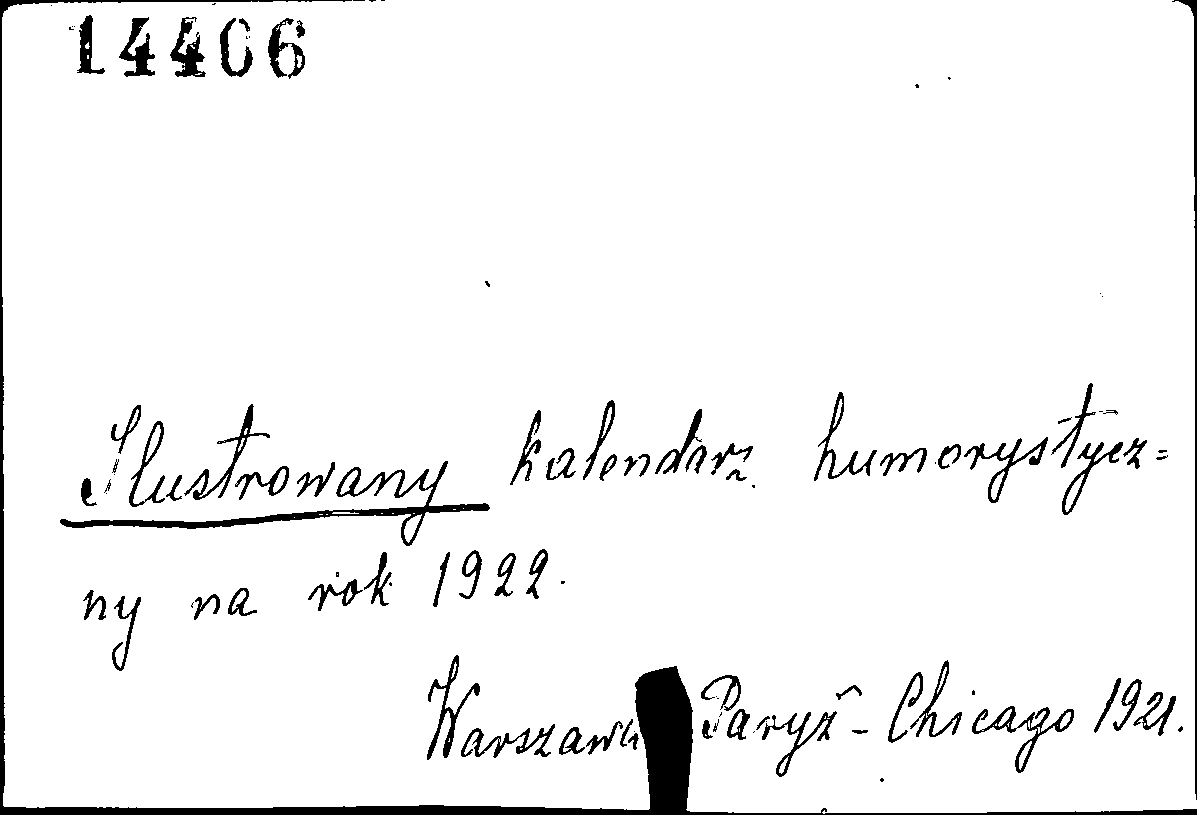 14406
Ilustrowany kalendarz humorystycz=
ny na rok 1922.
Warszawa Paryż - Chicago 1921.